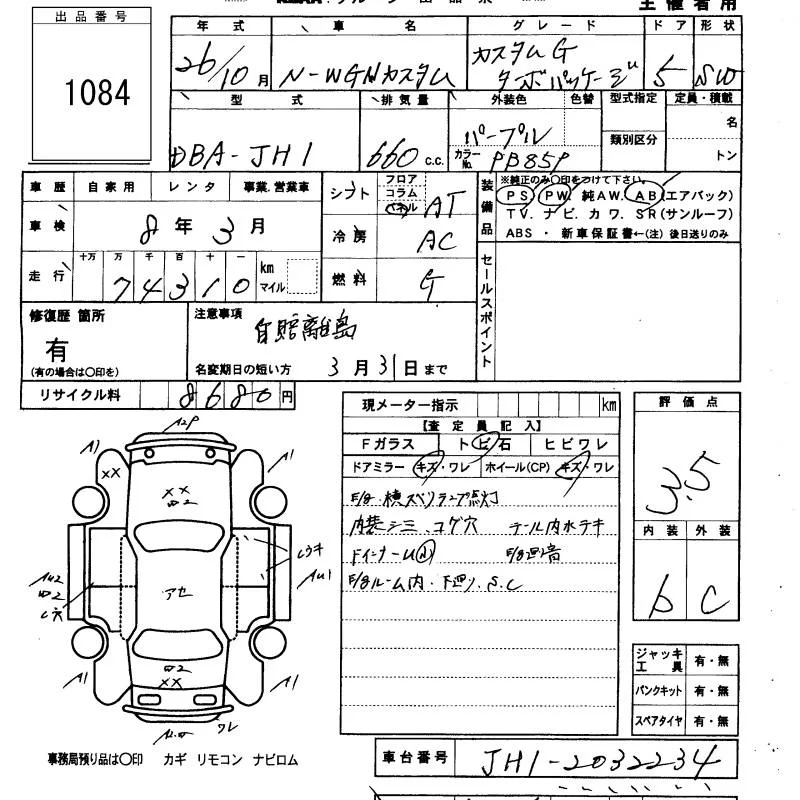 出品番号
1084
主催者用
年式 車名 グレード ドア 形状
26/10月 N-WGNカスタム カスタムG ターボパッケージ 5 SW
型式 排気量 外装色 色替 型式指定 定員・積載
DBA-JH1 660 c.c. パープル 類別区分 名
カラーNo. PB85P トン
車歴 自家用 レンタ 事業.営業車
車検 8年 3月
走行 十万 万 千 百 十 一
74310 km マイル
シフト フロア コラム パネル AT
冷房 AC
燃料 G
装備品 ※純正のみ〇印をつけて下さい。
PS PW. 純AW. AB(エアバック)
TV. ナビ. カワ. SR(サンルーフ)
ABS ・ 新車保証書←(注)後日送りのみ
セールスポイント
修復歴 箇所
有
(有の場合は〇印を)
注意事項
自賠離島
名変期日の短い方 3月31日まで
リサイクル料 8680円
現メーター指示 km
【査定員記入】
Fガラス トビ石 ヒビワレ
ドアミラー キズ・ワレ ホイール(CP) キズ・ワレ
横スベリランプ点灯
内装シミ、コゲ穴 テール内水テキ
ルーム内・下廻り.S.C
評価点
3.5
内装 外装
b C
ジャッキ工具 有・無
パンクキット 有・無
スペアタイヤ 有・無
A1
A1
XX
XX
アセ
XX
A1
A1
ワレ
事務局預り品は〇印 カギ リモコン ナビロム
車台番号 JH1-2032234